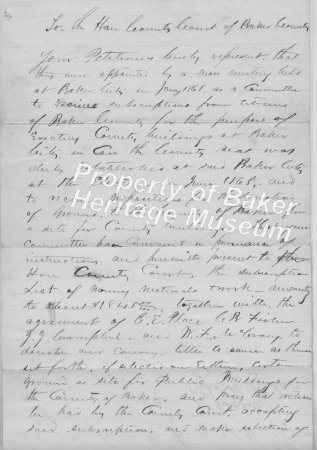 To. the Hon County Court of Baker County
Your Petitioners hereby represent, that
they were appointed by a mass meeting held
at Baker City in Jany 1868, as a Committee
to recieve subscriptions from citizens
of Baker County for the purpose of
Erecting County buildings at Baker
City, in Case the County seat was
established at said Baker City
at the June 1868, and
to
of ground of Baker for
a site for County The
Committee have in pursuance
instructions, and herewith present to
Hon County Court, the subscription
List of money materials & work – amount
to about $1845 together with the
agreement of C. R. Foster
J. J. Campbell, and W. F. McCrary to
donate and Convey title to same as therein
set forth, if selected as Certain
Ground as site for Public Buildings for
the County of Baker, and pray that action
be had by the County Court, accepting
said subscription, and make selection of
Property of Baker
Heritage Museum